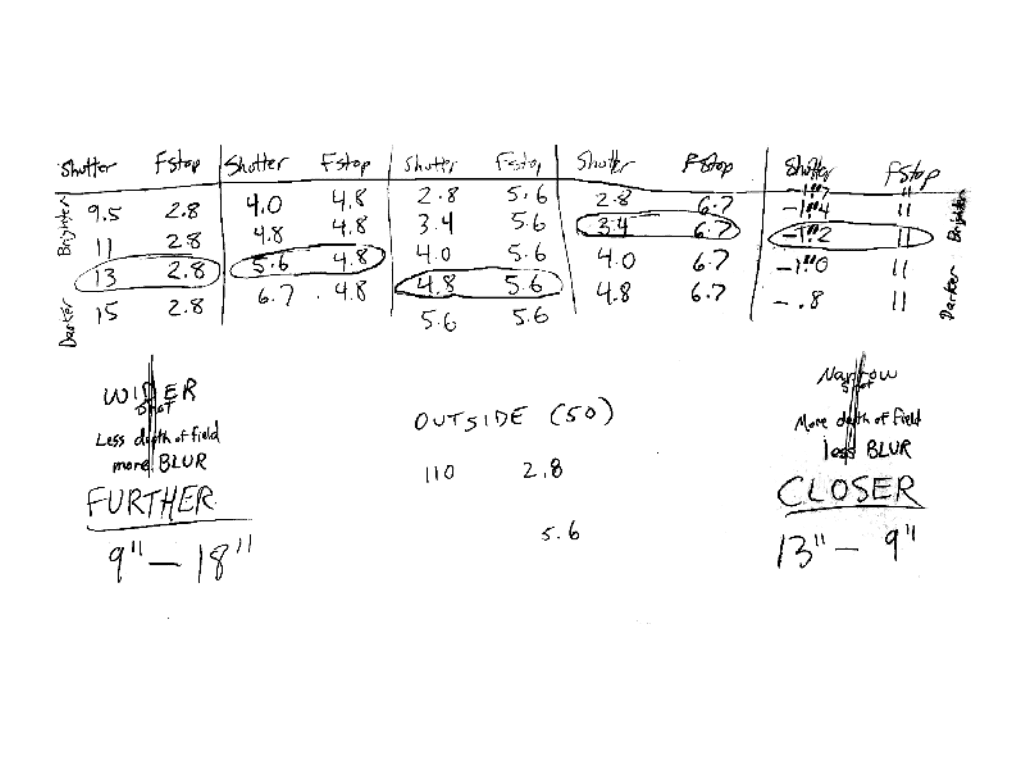 Shutter FStop Shutter FStop Shutter FStop Shutter FStop Shutter FStop
Brighter 9.5 2.8 4.0 4.8 2.8 5.6 2.8 6.7 -1"4 11 Brighter
11 2.8 4.8 4.8 3.4 5.6 3.4 6.7 -1"2 11
13 2.8 5.6 4.8 4.0 5.6 4.0 6.7 -1"0 11
Darker 15 2.8 6.7 4.8 4.8 5.6 4.8 6.7 -.8 11 Darker
5.6 5.6
WIDER
SHOT
Less depth of field
more BLUR
FURTHER
9" — 18"
OUTSIDE (50)
110 2.8
5.6
Narrow
Shot
More depth of field
less BLUR
CLOSER
13" — 9"